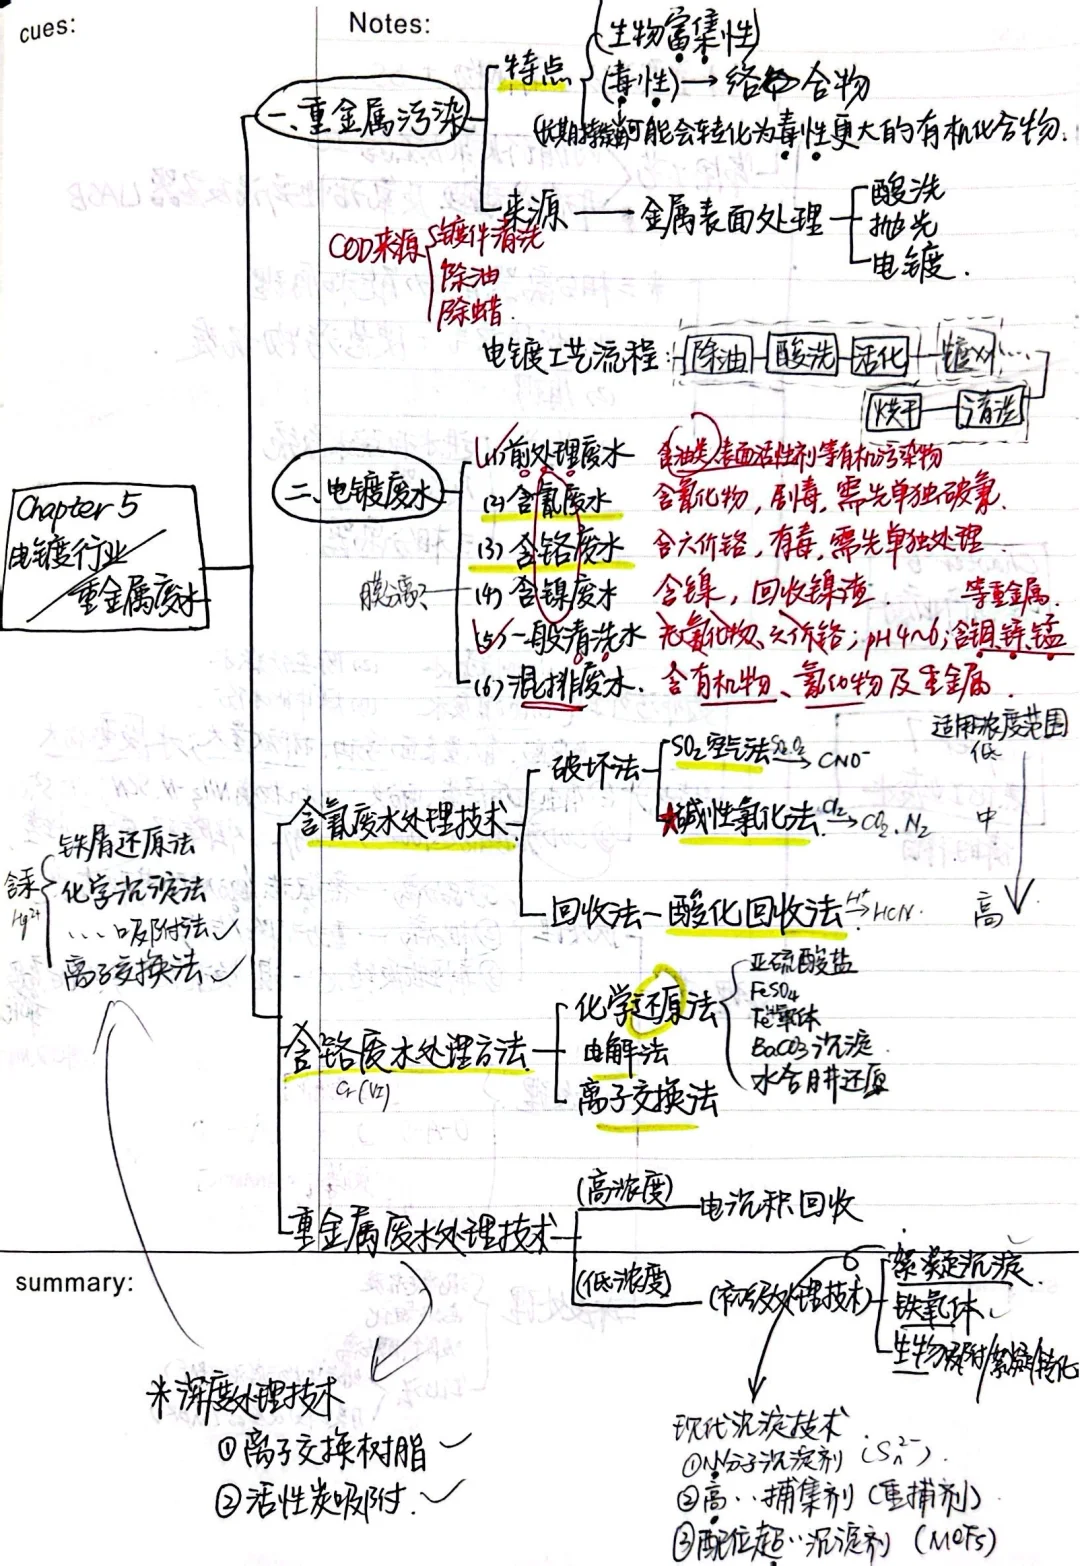 cues:
Notes:
一、重金属污染
特点
(生物富集性)
(毒性)→络合物
(长期持续)可能会转化为毒性更大的有机化合物.
来源 → 金属表面处理
酸洗
抛光
电镀.
COD来源
镀件清洗
除油
除蜡.
电镀工艺流程:
除油
酸洗
活化
镀××...
清洗
烘干
Chapter 5
电镀行业
重金属废水
二、电镀废水
(1)前处理废水 含油类、表面活性剂等有机污染物
(2)含氰废水 含氰化物,剧毒,需先单独破氰.
(3)含铬废水 含六价铬,有毒,需先单独处理.
膜分离?
(4)含镍废水 含镍,回收镍渣 等重金属.
(5)一般清洗水 无氰化物、六价铬;pH 4~6;含铜锌锰
(6)混排废水. 含有机物、氰化物及重金属.
适用浓度范围
含氰废水处理技术
破坏法
SO₂空气法 → CNO⁻
低
★碱性氧化法. Cl₂→ CO₂. N₂
中
回收法 — 酸化回收法 H⁺→ HCN.
高
含汞
Hg²⁺
铁屑还原法
化学沉淀法
....吸附法✓
离子交换法✓
含铬废水处理方法
Cr(VI)
化学还原法
亚硫酸盐
FeSO₄
铁氧体
BaCO₃沉淀
水合肼还原
电解法
离子交换法
重金属废水处理技术
(高浓度) 电沉积回收
(低浓度) (初级处理技术)
絮凝沉淀
铁氧体
生物吸附/絮凝/转化
summary:
*深度处理技术
①离子交换树脂 ✓
②活性炭吸附. ✓
现代沉淀技术
①小分子沉淀剂 (Sₙ²⁻).
②高··捕集剂 (重捕剂)
③配位超··沉淀剂 (MOFs)